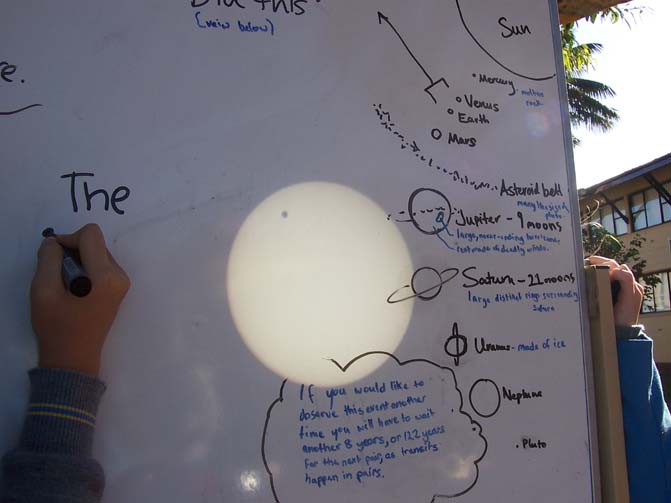 this"
(view below)
re.
The
Sun
Mercury- molten
rock
Venus
Earth
Mars
Asteroid belt
many the size of
pluto
Jupiter - 9 moons
large, never-ending hurricane,
rest made of deadly winds.
Saturn - 21 moons
large distinct rings surrounding
Saturn
Uranus - made of ice
Neptune
Pluto
If you would like to
observe this event another
time you will have to wait
another 8 years, or 122 years
for the next pair, as transits
happen in pairs.